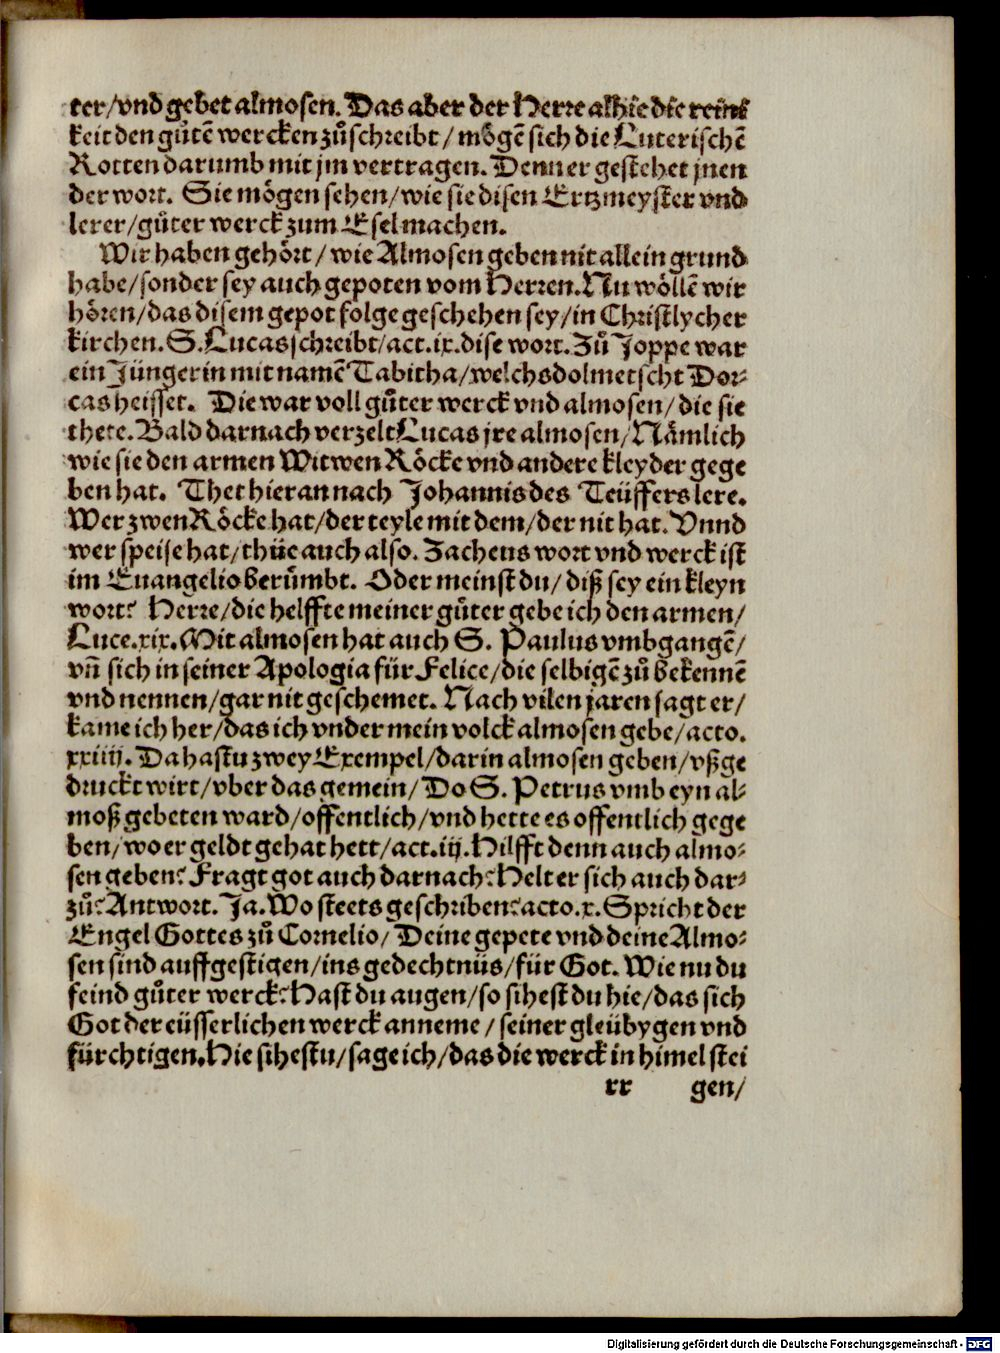 ter/vnd gebet almosen. Das aber der Herre alhie die reini
keit den gůtē wercken zůschreibt/ mögē sich die Luterischē
Rotten darumb mit jm vertragen. Denn er gestehet jnen
der wort. Sie mögen sehen/wie sie disen Ertzmeyster vnd
lerer/gůter werck zum Esel machen.
Wir haben gehört/ wie Almosen geben nit allein grund
habe/sonder sey auch gepoten vom Herren. Nu wöllē wir
hören/das disem gepot folge geschehen sey/in Christlycher
kirchen. S. Lucas schreibt/act. ix. dise wort. Zů Joppe war
ein Jüngerin mit namē Tabitha/welchs dolmetscht Dor⸗
cas heisset. Die war voll gůter werck vnd almosen/die sie
thete. Bald darnach verzelt Lucas jre almosen/Nämlich
wie sie den armen Witwen Röcke vnd andere kleyder gege
ben hat. Thet hieran nach Johannis des Teüffers lere.
Wer zwen Röcke hat/der teyle mit dem/der nit hat. Vnnd
wer speise hat/thüe auch also. Zacheus wort vnd werck ist
im Euangelio berůmbt. Oder meinst du/diß sey ein kleyn
wort? Herre/die helffte meiner gůter gebe ich den armen/
Luce. xix. Mit almosen hat auch S. Paulus vmbgangē/
vñ sich in seiner Apologia für Felice/die selbigē zů bekennē
vnd nennen/gar nit geschemet. Nach vilen jaren sagt er/
kame ich her/das ich vnder mein volck almosen gebe/acto.
xxiiij. Da hastu zwey Exempel/darin almosen geben/vßge
druckt wirt/vber das gemein/ Do S. Petrus vmb eyn al⸗
moß gebeten ward/offentlich/vnd hette es offentlich gege
ben/wo er geldt gehat hett/act. iij. Hilfft denn auch almo⸗
sen geben? Fragt got auch darnach? Helt er sich auch dar⸗
zů? Antwort. Ja. Wo steets geschriben? acto. x. Spricht der
Engel Gottes zů Cornelio/ Deine gepete vnd deine Almo⸗
sen sind auffgestigen/ins gedechtnüs/für Got. Wie nu du
feind gůter werck? Hast du augen/so sihest du hie/das sich
Got der eüsserlichen werck anneme/ seiner gleübygen vnd
fürchtigen. Hie sihestu/sage ich/das die werck in himel stei
xx gen/
Digitalisierung gefördert durch die Deutsche Forschungsgemeinschaft - DFG